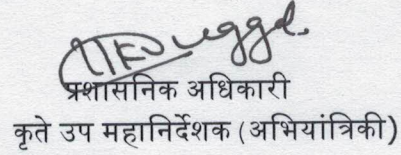 प्रशासनिक अधिकारी
कृते उप महानिर्देशक (अभियांत्रिकी)